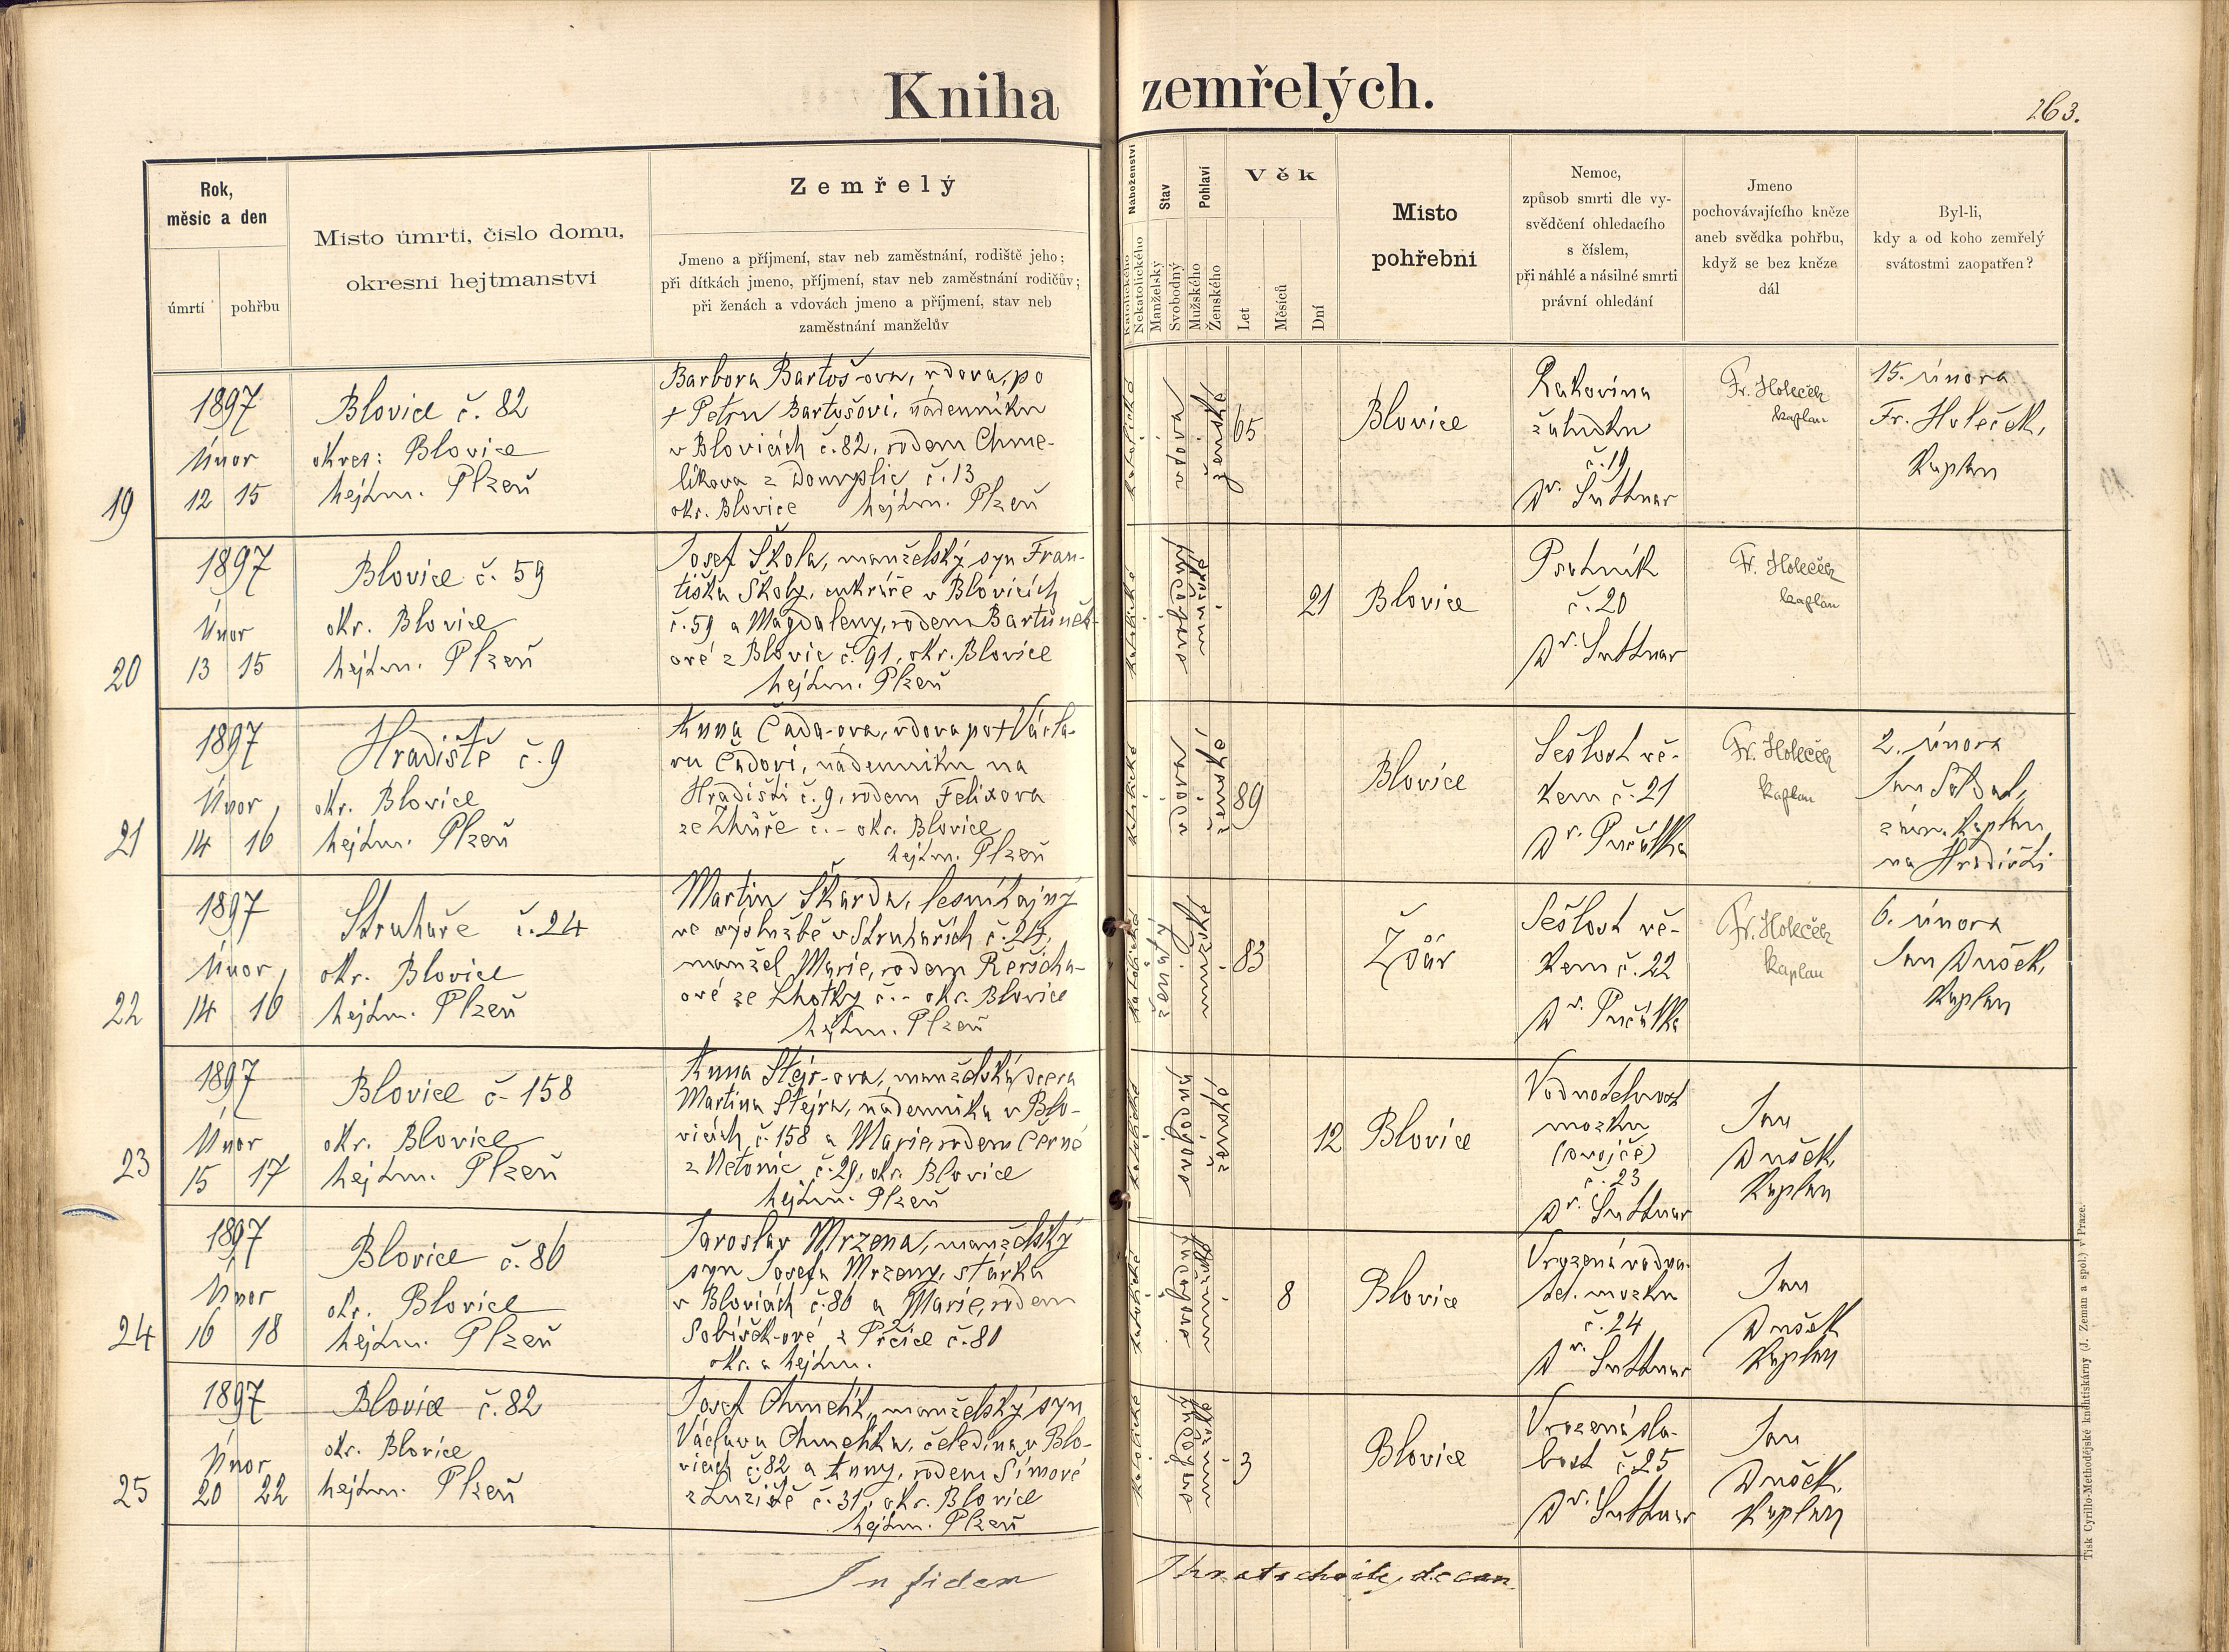 Kniha zemřelých.
263.
Rok,
měsíc a den
úmrtí
pohřbu
Místo úmrtí, číslo domu,
okresní hejtmanství
Zemřelý
Jmeno a příjmení, stav neb zaměstnání, rodiště jeho;
při dítkách jmeno, příjmení, stav neb zaměstnání rodičův;
při ženách a vdovách jmeno a příjmení, stav neb
zaměstnání manželův
Náboženství
Katolického
Nekatolického
Stav
Manželský
Svobodný
Pohlaví
Mužského
Ženského
Věk
Let
Měsíců
Dní
Místo
pohřební
Nemoc,
způsob smrti dle vy-
svědčení ohledacího
s číslem,
při náhlé a násilné smrti
právní ohledání
Jmeno
pochovávajícího kněze
aneb svědka pohřbu,
když se bez kněze
dál
Byl-li,
kdy a od koho zemřelý
svátostmi zaopatřen?
19
1897
Únor
12 15
Blovice č. 82
okres: Blovice
hejtm. Plzeň
Barbora Bartoš-ova, vdova, po
+ Petru Bartošovi, nádenníku
v Blovicích č. 82, rodem Chme-
líkova z Domyslic č. 13
okr. Blovice hejtm. Plzeň
katolické
vdova
ženské
65
Blovice
Rakovina
žaludku
č. 19
Dr. Suttnar
Fr. Holeček
kaplan
15. února
Fr. Holeček,
kaplan
20
1897
Únor
13 15
Blovice č. 59
okr. Blovice
hejtm. Plzeň
Josef Škola, manželský syn Fran-
tiška Školy, cukráře v Blovicích
č. 59 a Magdaleny, rodem Bartůněk-
ové z Blovic č. 91, okr. Blovice
hejtm. Plzeň
katolické
svobodný
mužské
21
Blovice
Psotník
č. 20
Dr. Suttnar
Fr. Holeček
kaplan
21
1897
Únor
14 16
Hradiště č. 9
okr. Blovice
hejtm. Plzeň
Anna Čada-ova, vdova po + Václa-
vu Čadovi, nádenníku na
Hradišti č. 9, rodem Felixova
ze Zhůře č. - okr. Blovice
hejtm. Plzeň
katolické
vdova
ženské
89
Blovice
Sešlost vě-
kem č. 21
Dr. Pučálka
Fr. Holeček
kaplan
2. února
Jan Soldát,
zám. kaplan
na Hradišti
22
1897
Únor
14 16
Struhaře č. 24
okr. Blovice
hejtm. Plzeň
Martin Škarda, lesní hajný
ve výslužbě v Struhařích č. 24,
manžel Marie, rodem
ové ze Lhotky č. - okr. Blovice
hejtm. Plzeň
katolické
ženatý
mužské
83
Žďár
Sešlost vě-
kem č. 22
Dr. Pučálka
Fr. Holeček
kaplan
6. února
Jan Dušek,
kaplan
23
1897
Únor
15 17
Blovice č. 158
okr. Blovice
hejtm. Plzeň
Anna Štejr-ova, manželská dcera
Martina Štejra, nádenníka v Blo-
vicích č. 158 a Marie, rodem Černé
z Netonic č. 29, okr. Blovice
hejtm. Plzeň
katolické
svobodný
ženské
12
Blovice
Vodnotelnost
mozku
(dvojče)
č. 23
Dr. Suttnar
Jan
Dušek,
kaplan
24
1897
Únor
16 18
Blovice č. 86
okr. Blovice
hejtm. Plzeň
Jaroslav Mrzena, manželský
syn Josefa Mrzeny, stárka
v Blovicích č. 86 a Marie, rodem
Sobíšek-ové z Prčice č. 80
okr. a hejtm.
katolické
svobodný
mužské
8
Blovice
Vrozená vodna-
tel. mozku
č. 24
Dr. Suttnar
Jan
Dušek
kaplan
25
1897
Únor
20 22
Blovice č. 82
okr. Blovice
hejtm. Plzeň
Josef Chmelík, manželský syn
Václava Chmelíka, čeledína v Blo-
vicích č. 82 a Anny, rodem Šímové
z Lužiště č. 31, okr. Blovice
hejtm. Plzeň
katolické
svobodný
mužské
3
Blovice
Vrozená sla-
bost č. 25
Dr. Suttnar
Jan
Dušek,
kaplan
In fidem
decan
Tisk Cyrillo-Methodějské knihtiskárny (J. Zeman a spol.) v Praze.